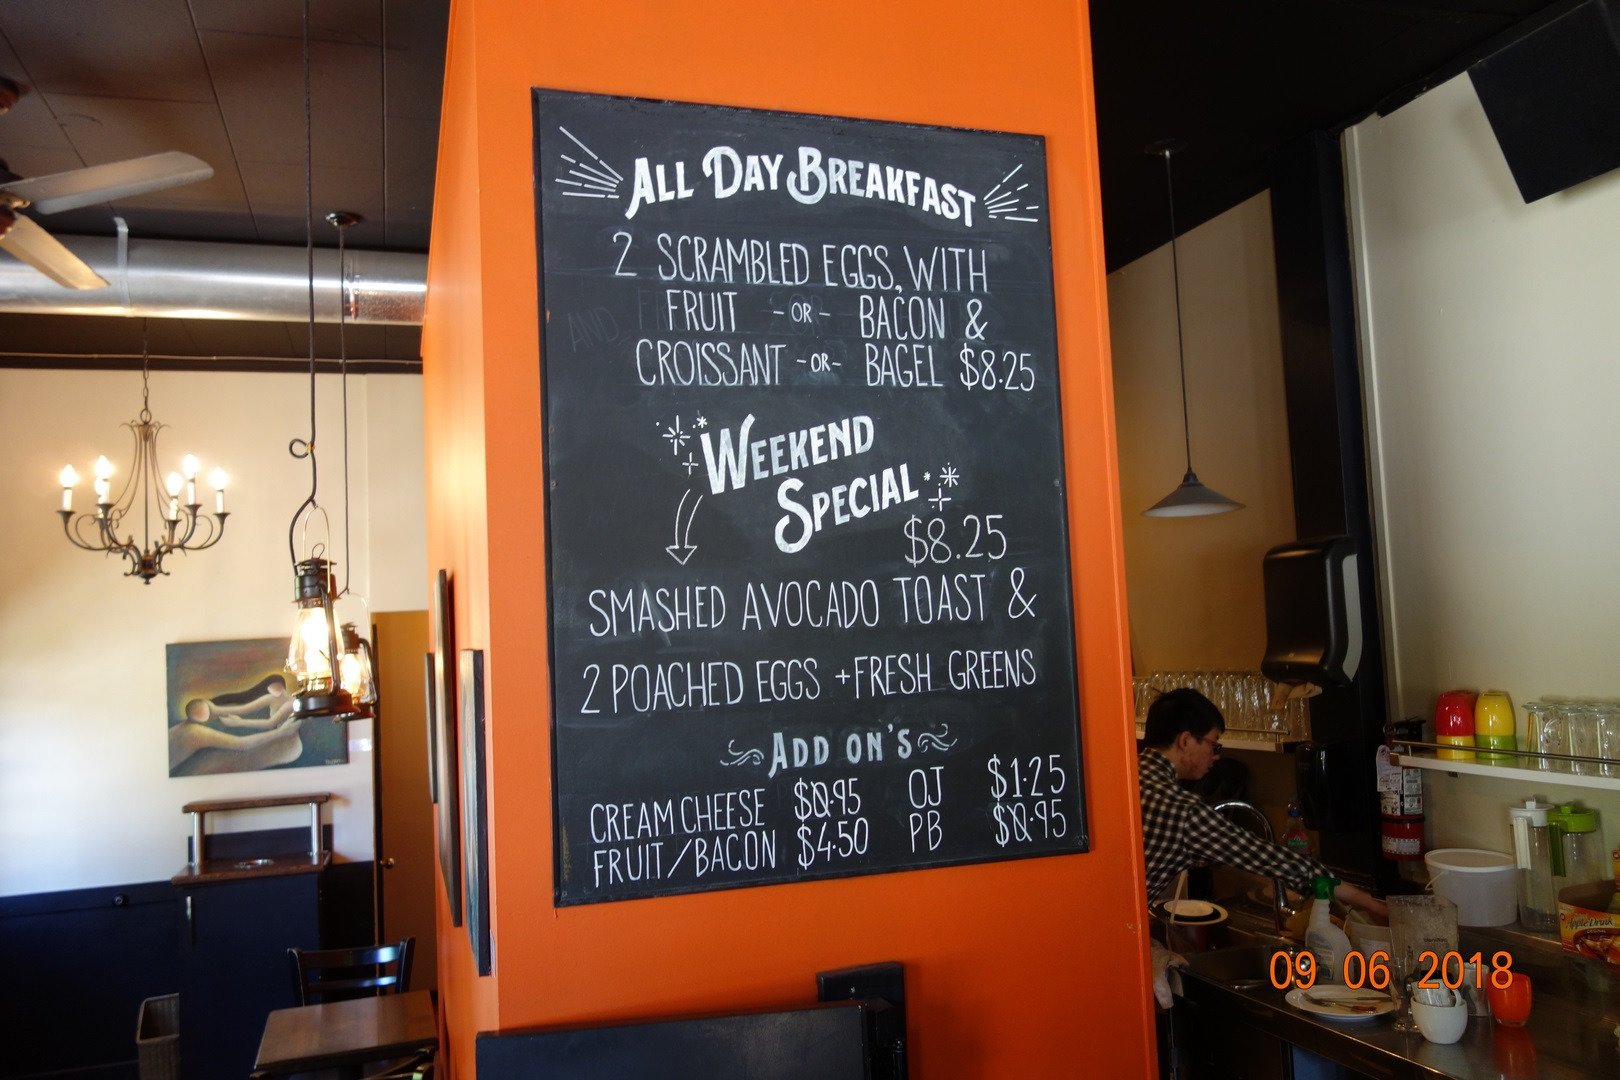 ALL DAY BREAKFAST
2 SCRAMBLED EGGS, WITH
FRUIT -OR- BACON &
CROISSANT -OR- BAGEL $8.25
WEEKEND
SPECIAL
$8.25
SMASHED AVOCADO TOAST &
2 POACHED EGGS + FRESH GREENS
ADD ON'S
CREAM CHEESE $0.95 OJ $1.25
FRUIT/BACON $4.50 PB $0.95
Apple Drink
09 06 2018